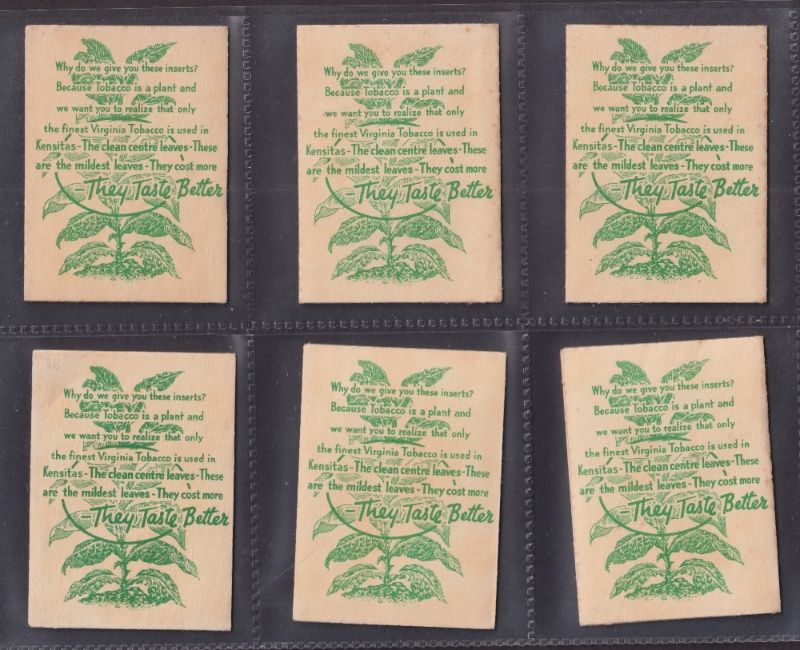 Why do we give you these inserts?
Because Tobacco is a plant and
we want you to realize that only
the finest Virginia Tobacco is used in
Kensitas - The clean centre leaves - These
are the mildest leaves - They cost more
- They Taste Better
Why do we give you these inserts?
Because Tobacco is a plant and
we want you to realize that only
the finest Virginia Tobacco is used in
Kensitas - The clean centre leaves - These
are the mildest leaves - They cost more
- They Taste Better
Why do we give you these inserts?
Because Tobacco is a plant and
we want you to realize that only
the finest Virginia Tobacco is used in
Kensitas - The clean centre leaves - These
are the mildest leaves - They cost more
- They Taste Better
Why do we give you these inserts?
Because Tobacco is a plant and
we want you to realize that only
the finest Virginia Tobacco is used in
Kensitas - The clean centre leaves - These
are the mildest leaves - They cost more
- They Taste Better
Why do we give you these inserts?
Because Tobacco is a plant and
we want you to realize that only
the finest Virginia Tobacco is used in
Kensitas - The clean centre leaves - These
are the mildest leaves - They cost more
- They Taste Better
Why do we give you these inserts?
Because Tobacco is a plant and
we want you to realize that only
the finest Virginia Tobacco is used in
Kensitas - The clean centre leaves - These
are the mildest leaves - They cost more
- They Taste Better